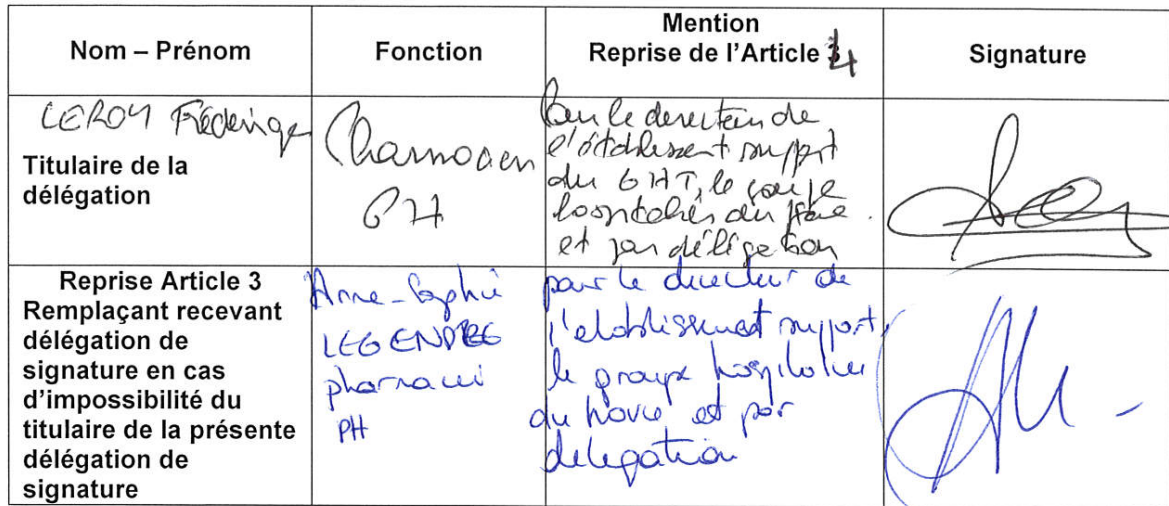 Nom – Prénom
Fonction
Mention
Reprise de l'Article 4
Signature
LEROY Frédérique
Titulaire de la
délégation
Pharmacien
PH
Pour le directeur de
l'établissement support
du GHT, le groupe
hospitalier du Havre
et par délégation
Reprise Article 3
Remplaçant recevant
délégation de
signature en cas
d'impossibilité du
titulaire de la présente
délégation de
signature
Anne-Sophie
LEGENDRE
pharmacien
PH
pour le directeur de
l'établissement support,
le groupe hospitalier
du havre et par
délégation